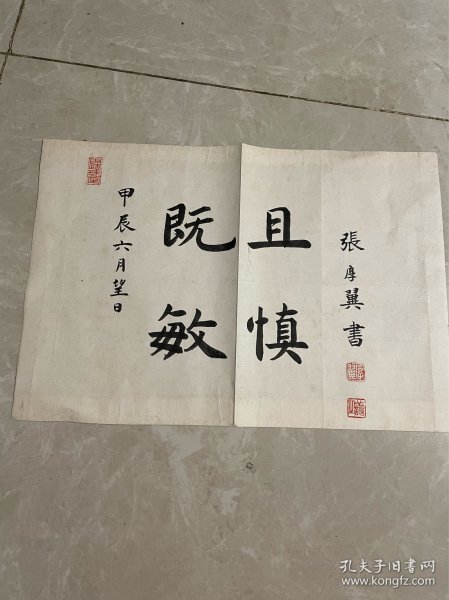 甲辰六月望日
既敏
且慎
張厚翼書
孔夫子旧书网
www.kongfz.com